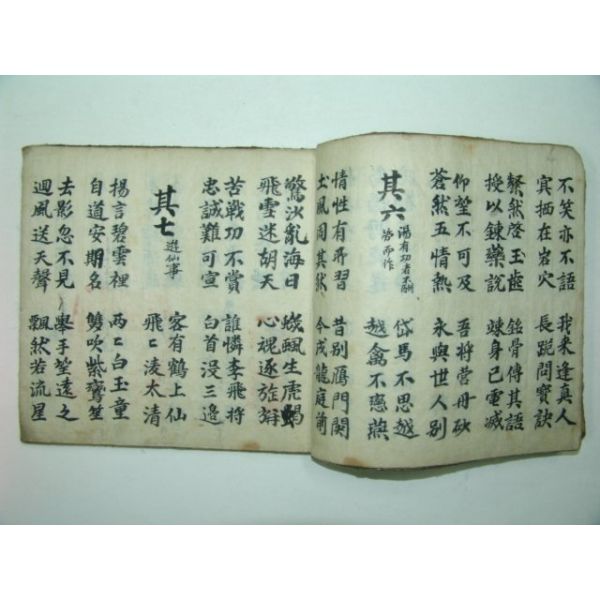 不笑亦不語
賓栖在岩穴
我來逢真人
長跪問寶訣
粲然啓玉齒
授以鍊藥說
銘骨傳其語
竦身已電滅
仰望不可及
蒼然五情熱
吾將營丹砂
永與世人別
其六
傷有功者不酬
勞而作
岱馬不思越
越禽不戀燕
情性有所習
土風固其然
昔別鴈門関
今戍龍庭前
驚沙亂海日
飛雪迷胡天
蟣蝨生虎鶡
心魂逐旌旃
苦戰功不賞
忠誠難可宣
誰憐李飛將
白首没三邊
其七
遊仙事
客有鶴上仙
飛〻凌太清
揚言碧雲裡
自道安期名
兩〻白玉童
雙吹紫鸞笙
去影忽不見
迴風送天聲
擧手望遠之
飄然若流星